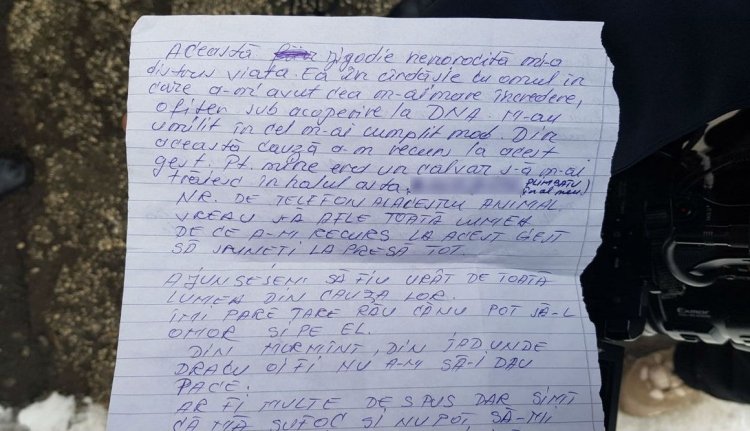 Această jigodie nenorocită mi-a
distrus viata. Ea în cîrdăsie cu omul în
care a-m avut cea m-ai mare încredere,
ofiter sub acoperire la DNA. M-au
umilit în cel m-ai cumplit mod. Din
această cauză a-m recurs la acest
gest. Pt. mine era un calvar s-ă m-ai
trăiesc în halul asta.
PLIMBATU
în al meu)
NR. DE TELEFON ALACESTUI ANIMAL.
VREAU SA AFLE TOATĂ LUMEA
DE CE A-M RECURS LA ACEST GEST
SĂ SPUNETI LA PRESĂ TOT.
AJUNSESEM SĂ FIU URÂT DE TOATĂ
LUMEA DIN CAUZA LOR.
ÎMI PARE TARE RĂU CĂ NU POT SĂ-L
OMOR SI PE EL.
DIN MORMÎNT, DIN IAD UNDE
DRACU OI FI NU A-M SĂ-I DAU
PACE.
AR FI MULTE DE SPUS DAR SIMT
CĂ MĂ SUFOC SI NU POT SĂ-MI
Exmor